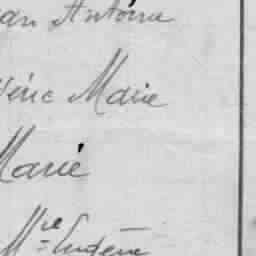 an Antoine
érie Marie
Marie
Mre Eugène